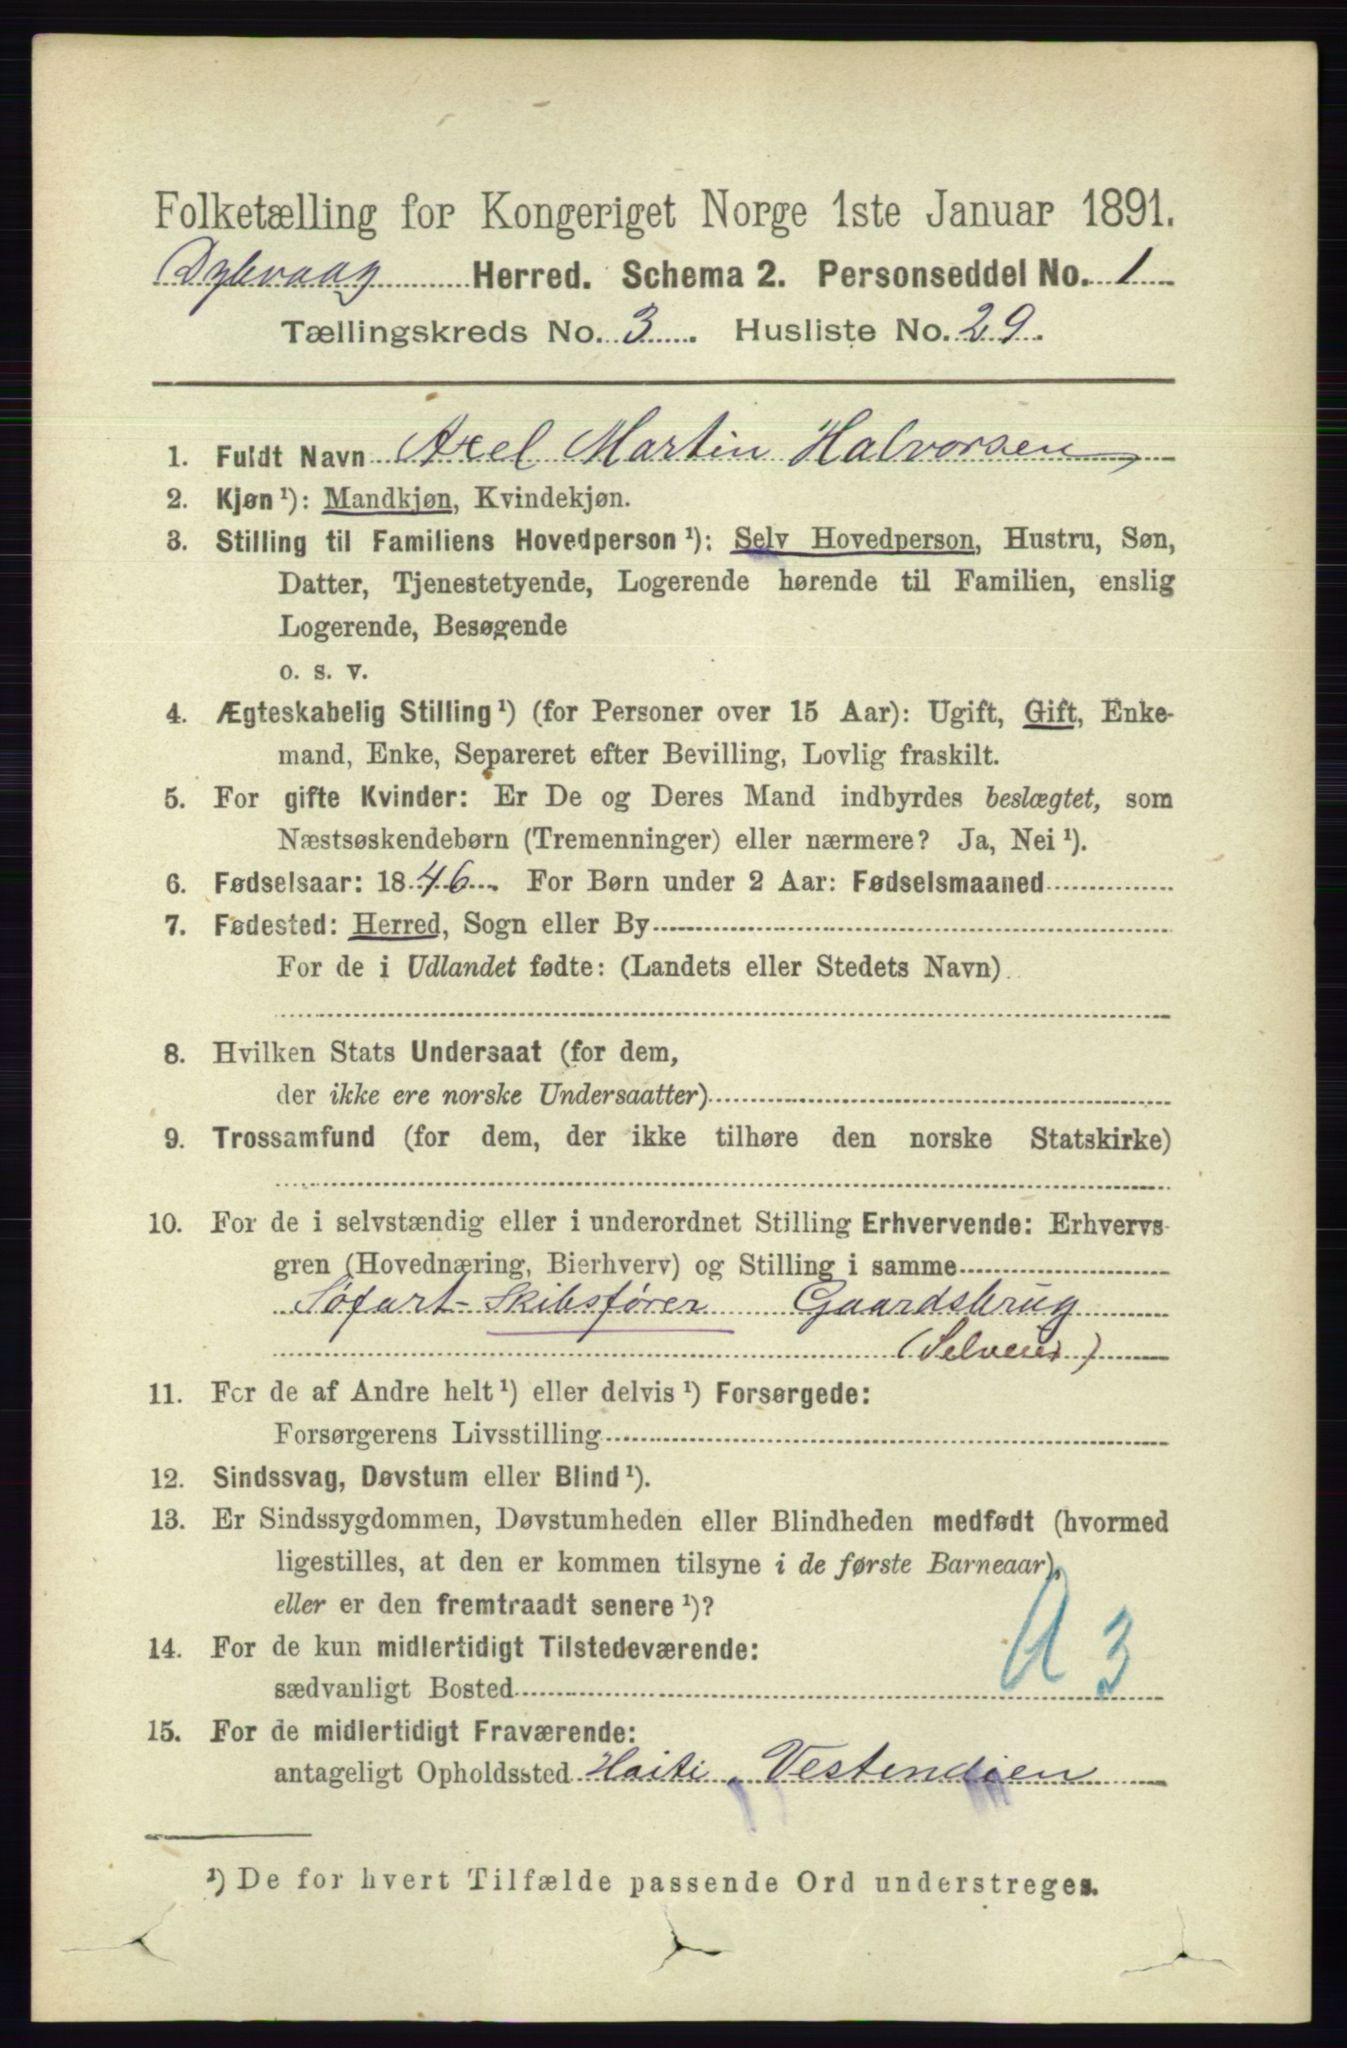 Folketælling for Kongeriget Norge 1ste Januar 1891.
Dybvaag Herred. Schema 2. Personseddel No. 1
Tællingskreds No. 3. Husliste No. 29.
1. Fuldt Navn Axel Martin Halvorsen
2. Kjøn ¹): Mandkjøn, Kvindekjøn.
3. Stilling til Familiens Hovedperson ¹): Selv Hovedperson, Hustru, Søn,
Datter, Tjenestetyende, Logerende hørende til Familien, enslig
Logerende, Besøgende
o. s. v.
4. Ægteskabelig Stilling ¹) (for Personer over 15 Aar): Ugift, Gift, Enke-
mand, Enke, Separeret efter Bevilling, Lovlig fraskilt.
5. For gifte Kvinder: Er De og Deres Mand indbyrdes beslægtet, som
Næstsøskendebørn (Tremenninger) eller nærmere? Ja, Nei ¹).
6. Fødselsaar: 1846. For Børn under 2 Aar: Fødselsmaaned
7. Fødested: Herred, Sogn eller By
For de i Udlandet fødte: (Landets eller Stedets Navn)
8. Hvilken Stats Undersaat (for dem,
der ikke ere norske Undersaatter)
9. Trossamfund (for dem, der ikke tilhøre den norske Statskirke)
10. For de i selvstændig eller i underordnet Stilling Erhvervende: Erhvervs-
gren (Hovednæring, Bierhverv) og Stilling i samme
Søfart- Skibsfører Gaardsbrug
(Selveier)
11. For de af Andre helt ¹) eller delvis ¹) Forsørgede:
Forsørgerens Livsstilling
12. Sindssvag, Døvstum eller Blind ¹).
13. Er Sindssygdommen, Døvstumheden eller Blindheden medfødt (hvormed
ligestilles, at den er kommen tilsyne i de første Barneaar),
eller er den fremtraadt senere ¹)?
14. For de kun midlertidigt Tilstedeværende:
sædvanligt Bosted
15. For de midlertidigt Fraværende:
antageligt Opholdssted Haiti, Vestindien
¹) De for hvert Tilfælde passende Ord understreges.